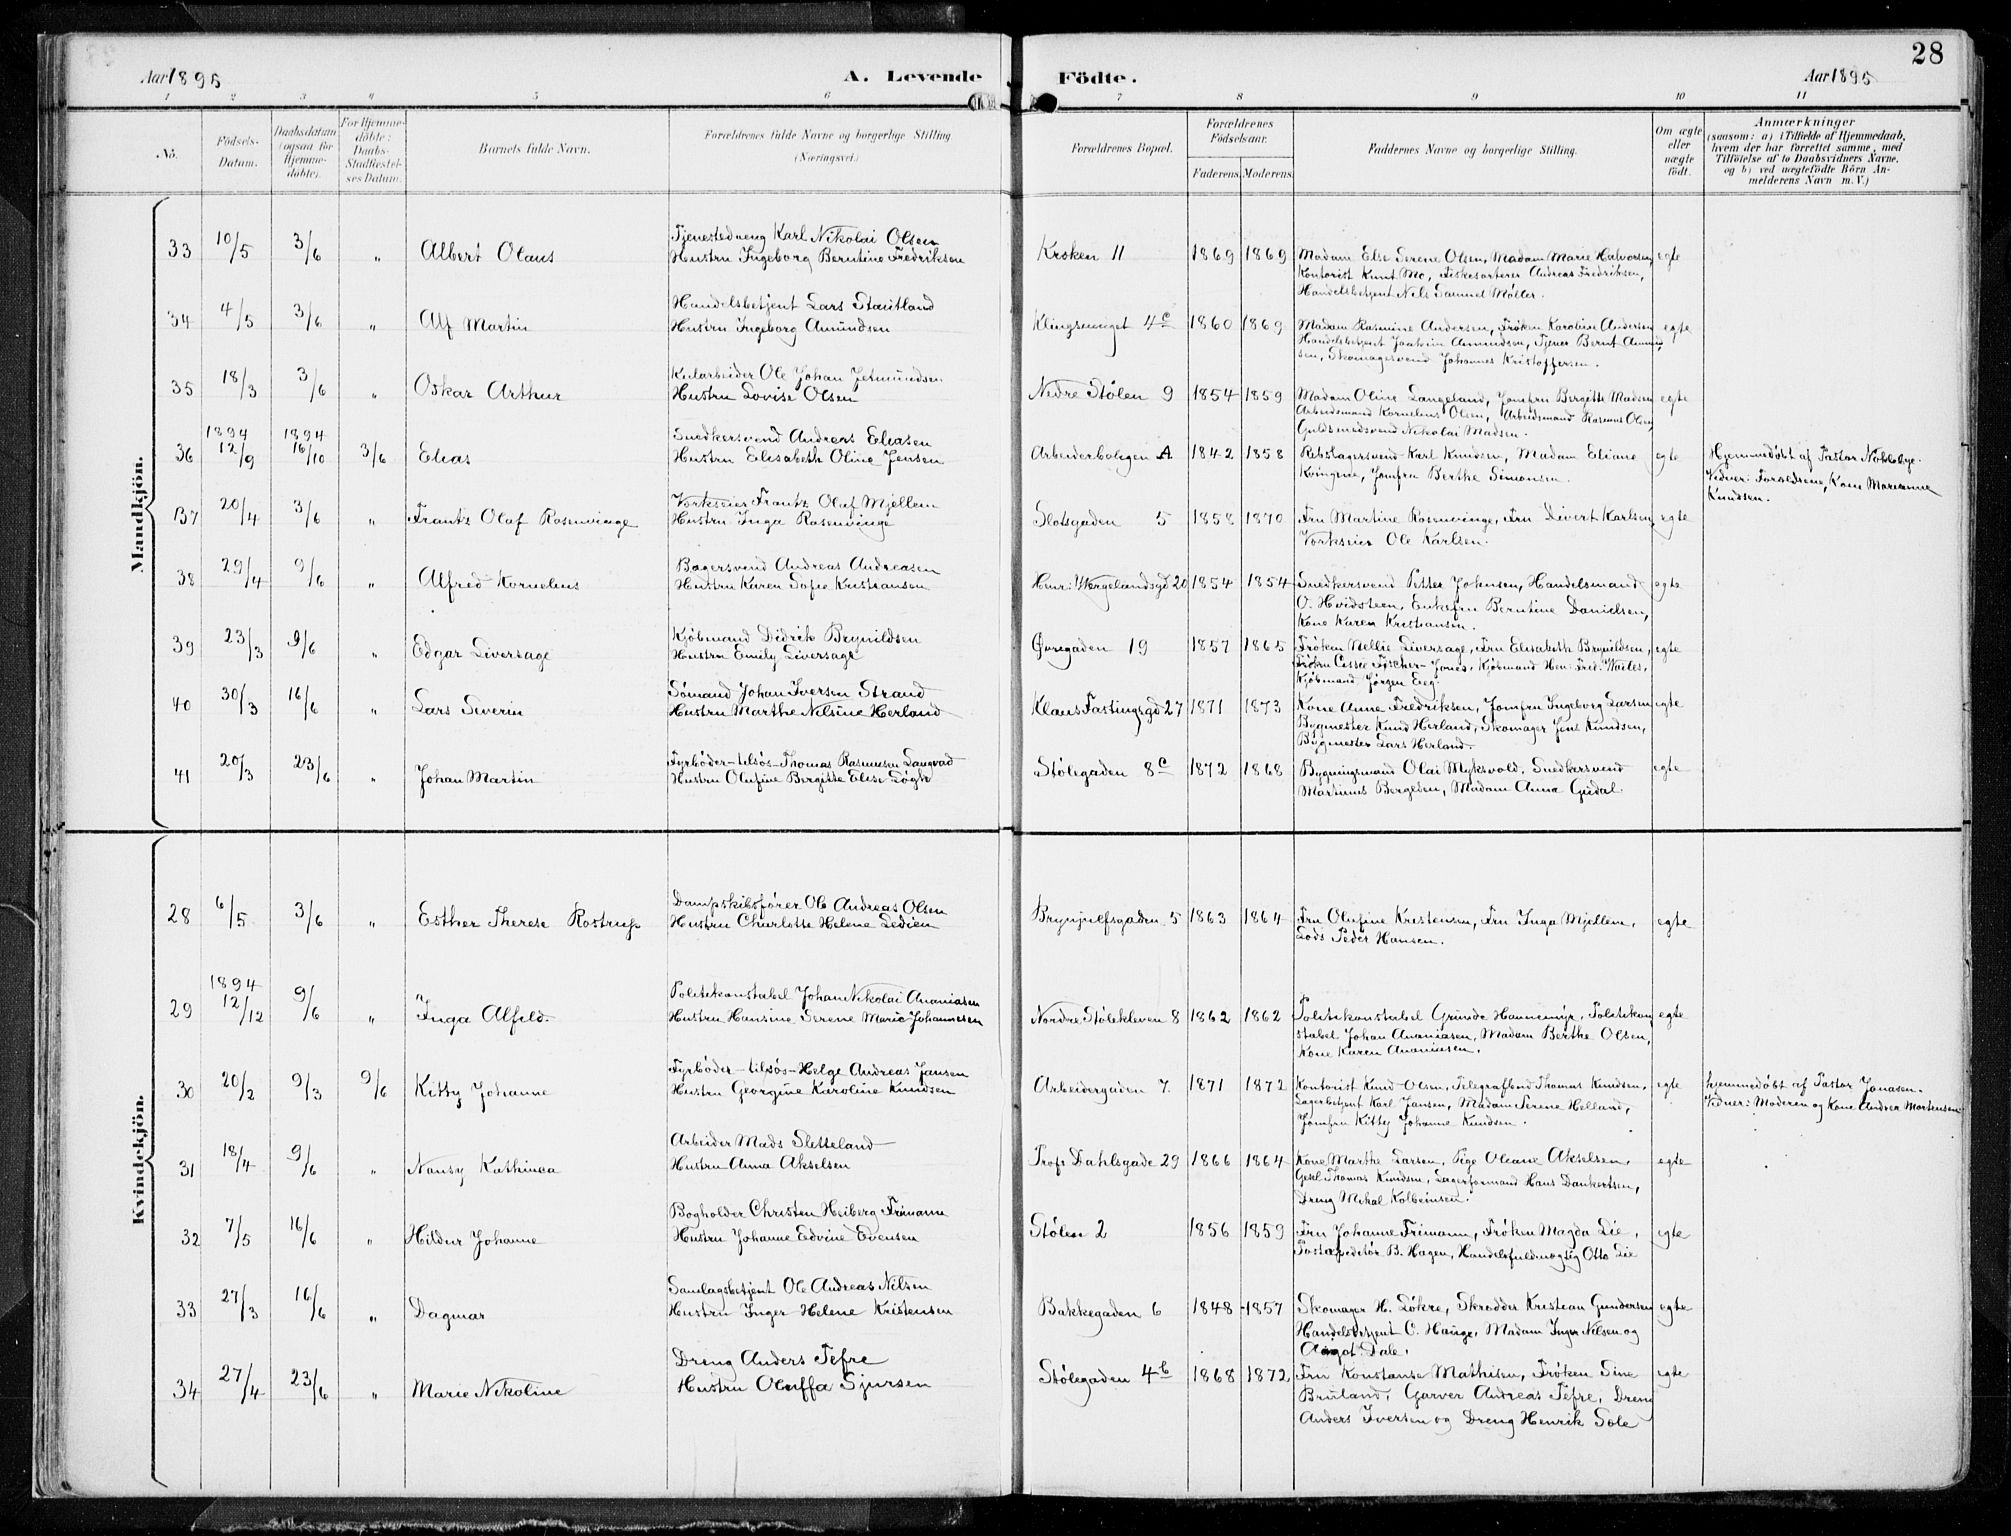 28
Aar 1895
A. Levende
Födte.
Aar 1895
1 2 3 4 5 6 7 8 9 10 11
Nö.
Födsels-
Datum.
Daabsdatum
(ogsaa for
Hjemme-
döbte).
For Hjemme-
döbte:
Daabs-
Stadfæstel-
ses Datum.
Barnets fulde Navn.
Forældrenes fulde Navne og borgerlige Stilling
(Næringsvei.)
Forældrenes Bopæl.
Forældrenes
Födselsaar.
Faderens. Moderens.
Faddernes Navne og borgerlige Stilling.
Om ægte
eller
uægte
födt.
Anmærkninger
(saasom: a) i Tilfælde af Hjemmedaab,
hvem der har forrettet samme, med
Tilföielse af to Daabsvidners Navne,
og b) ved uægtefödte Börn An-
melderens Navn m. V.)
Mandkjön.
33 10/5 3/6 " Albert Olaus
Tjenestedreng Karl Nikolai Olsen
Hustru Ingeborg Berntine Fredriksen
Kroken 11 1869 1869
Madam Else Serene Olsen, Madam Marie Halvorsen,
Kontorist Knut Mo, Fiskesorterer Andreas Fredriksen,
Handelsbetjent Nils Samuel Møller.
egte
34 4/5 3/6 " Alf Martin
Handelsbetjent Lars Stautland
Hustru Ingeborg Amundsen
4c 1860 1869
Madam Rasmine Andersen, Frøken Karoline Andersen
Handelsbetjent Joakim Amundsen, Tjener Bernt Amund
sen, Skomagersvend Johannes Kristoffersen.
egte
35 18/3 3/6 " Oskar Arthur
Kularbeider Ole Johan Jetmundsen
Hustru Lovise Olsen
Nedre Stølen 9 1854 1859
Madam Oline Langeland, Jomfru Bergitte Madsen
Arbeidsmand Kornelius Olsen, Arbeidsmand Rasmus Olsen,
Guldsmedsvend Nikolai Madsen.
egte
36 1894 12/9 1894 16/10 3/6 Elias
Snedkersvend Andreas Eliasen
Hustru Elisabeth Oline Jensen
Arbeiderboligen A 1842 1858
Rebslagersvend Karl Knudsen, Madam Eliane
Kvingene, Jomfru Berthe Simonsen.
egte
Hjemmedøbt af Pastor
Vidner: Forældrene, Kone Marianne
Knudsen.
37 20/4 3/6 " Frantz Olaf Rosenvinge
Verkseier Frantz Olaf Mjellem
Hustru Inga Rosenvinge
Slotsgaden 5 1858 1870
Fru Martine Rosenvinge, Fru Divert Karlsen,
Verkseier Ole Karlsen.
egte
38 29/4 9/6 " Alfred Kornelius
Bagersvend Andreas Andreasen
Hustru Karen Sofie Kristiansen
Henr: Wergelandsgd 20 1854 1854
Snedkersvend Petter Johnsen, Handelsmand
O. Hvidsteen, Enkefru Berntine Danielsen,
Kone Karen Kristiansen.
egte
39 23/3 9/6 " Edgar Liversage
Kjøbmand Didrik Brynildsen
Hustru Emily Liversage
Øvregaden 19 1857 1865
Frøken Nellie Liversage, Fru Elisabeth Brynildsen,
Frøken Cissie Fischer-Jones, Kjøbmand Hen: Fred:
Kjøbmand Jørgen Eeg.
egte
40 30/3 16/6 " Lars Severin
Sømand Johan Iversen Strand
Hustru Marthe Nilsine Herland
Klaus Fastingsgd 27 1871 1873
Kone Anne Fredriksen, Jomfru Ingeborg Larsen
Bygmester Knud Herland, Skomager Jens Knudsen,
Bygmester Lars Herland.
egte
41 20/3 23/6 " Johan Martin
Fyrbøder-tilsøs-Thomas Rasmusen Langvad
Hustru Olufine Bergitte Elise Løgte
Stølegaden 8c 1872 1868
Bygningsmand Olai Myksvold, Snedkersvend
Martinus Bergesen, Madam Anna Gudal.
egte
Kvindekjön.
28 6/5 3/6 " Esther Therese Rostrup
Dampskibsfører Ole Andreas Olsen
Hustru Charlotte Helene Ledien
Brynjulfsgaden 5 1863 1864
Fru Olufine Kristensen, Fru Inga Mjellem,
Lods Peder Hansen.
egte
29 1894 12/12 9/6 " Inga Alfild.
Politikonstabel Johan Nikolai Ananiasen
Hustru Hansine Serene Marie Johannesen
Nordre Stølekleven 8 1862 1862
Politikonstabel Gunde Hannemyr, Politikon
stabel Johan Ananiasen, Madam Berthe Olsen,
Kone Karen Ananiasen.
egte
30 20/2 9/3 9/6 Kitty Johanne
Fyrbøder-tilsøs-Helge Andreas Jansen
Hustru Georgine Karoline Knudsen
Arbeidergaden 7 1871 1872
Kontorist Knud Olsen, Telegrafbud Thomas Knudsen,
Lagerbetjent Karl Jansen, Madam Serene Helland,
Jomfru Kitty Johanne Knudsen.
egte
hjemmedøbt af Pastor Jonasen.
Vidner: Moderen og Kone Andrea Mortensen
31 18/4 9/6 " Nansy Kathinca
Arbeider Mads Sletteland
Hustru Anna Akselsen
Prof. Dahlsgade 29 1866 1864
Kone Marthe Larsen, Pige Oleane Akselsen,
Gesel Thomas Knudsen, Lagerformand Hans Dankertsen,
Dreng Mikal Kolbeinsen.
egte
32 7/5 16/6 " Hildur Johanne
Bogholder Christen Heiberg Frimann
Hustru Johanne Edvine Evensen
Stølen 2 1856 1859
Fru Johanne Frimann, Frøken Magda Lie,
Postexpeditør B. Hagen, Handelsfuldmægtig Otto Lie
egte
33 27/3 16/6 " Dagmar
Samlagsbetjent Ole Andreas Nilsen
Hustru Inger Helene Kristensen
Bakkegaden 6 1848 1857
Skomager H. Løkre, Skrædder Kristian Gundersen
Handelsbetjent O. Hauge, Madam Inger Nilsen og
Aagot Dale.
egte
34 27/4 23/6 " Marie Nikoline
Dreng Anders Tefre
Hustru Oluffa Sjursen
Stølegaden 4b 1868 1872
Fru Konstanse Mathisen, Frøken Sine
Bruland, Garver Andreas Tefre, Dreng
Anders Iversen og Dreng Henrik Sole
egte